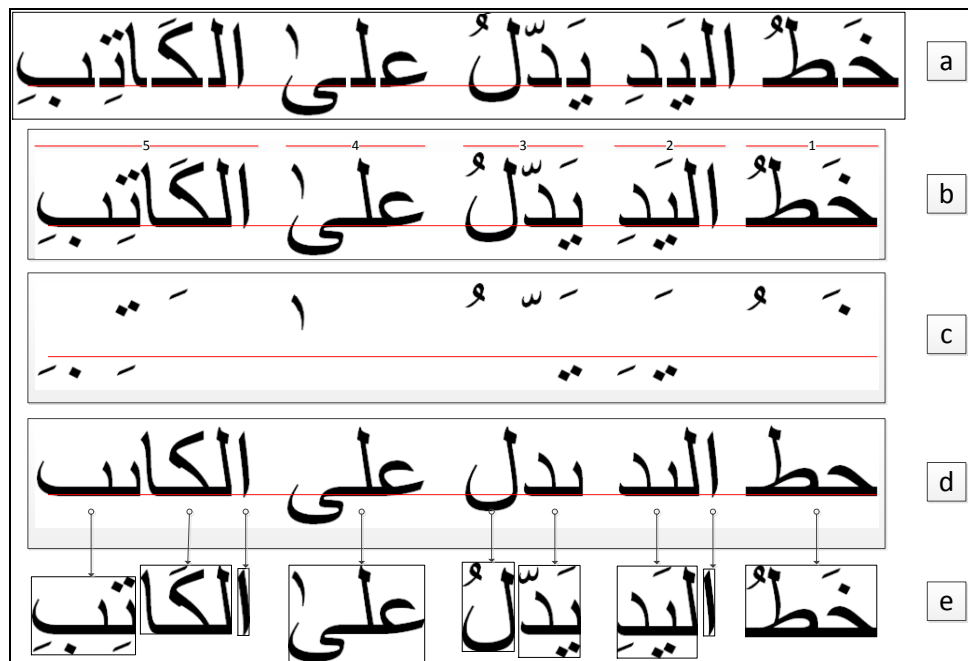 خَطُ اليَدِ يَدّلُ علىٰ الكَاتِبِ a
1 2 3 4 5
خَطُ اليَدِ يَدّلُ علىٰ الكَاتِبِ b
c
حط الٮد ٮدل على الكاٮٮ d
خَطُ ا ليَدِ يَدّ لُ علىٰ ا لكَا تِبِ e